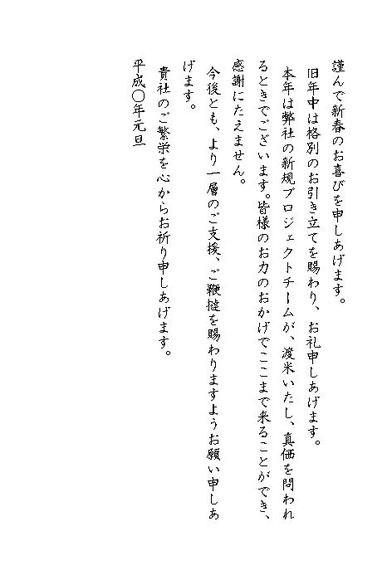 謹んで新春のお喜びを申しあげます。
旧年中は格別のお引き立てを賜わり、お礼申しあげます。
本年は弊社の新規プロジェクトチームが、渡米いたし、真価を問われ
るときでございます。皆様のお力のおかげでここまで来ることができ、
感謝にたえません。
今後とも、より一層のご支援、ご鞭撻を賜わりますようお願い申しあ
げます。
貴社のご繁栄を心からお祈り申しあげます。
平成〇年元旦